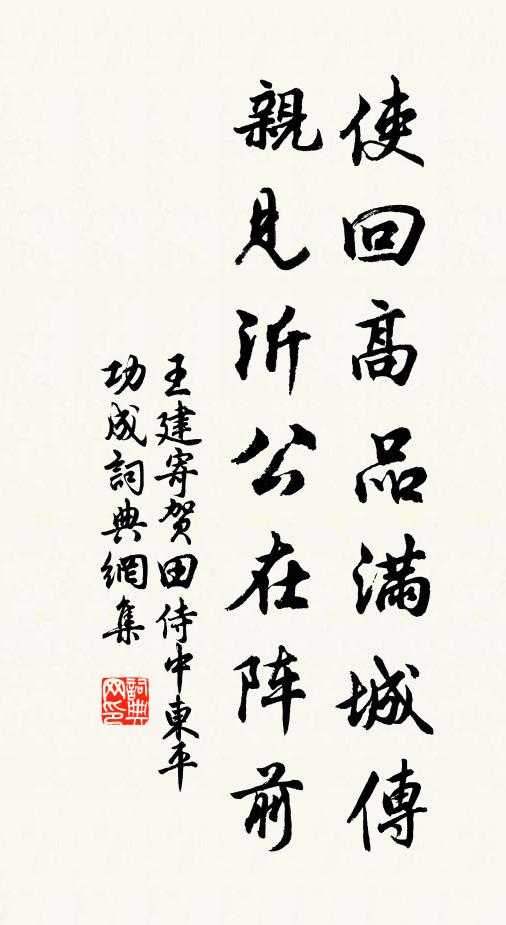 使回高品满城傳
親見沂公在阵前
王建寄贺田侍中東平
功成詞典網集
詞典网印